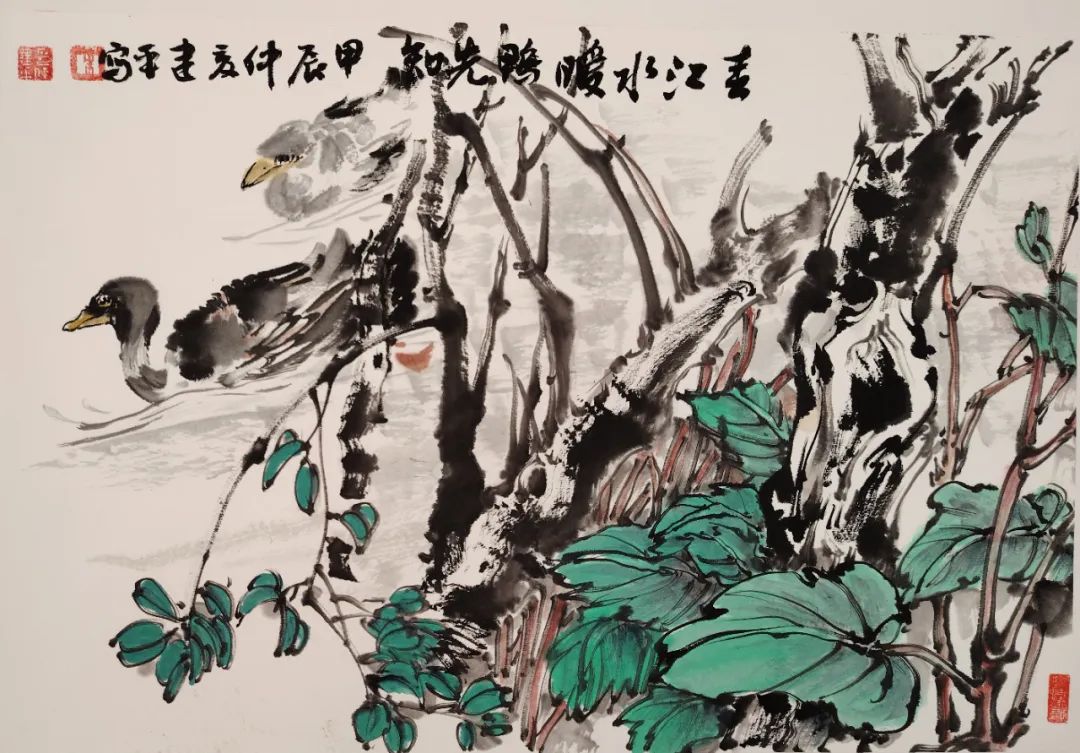 春江水暖鸭先知 甲辰仲夏建平写